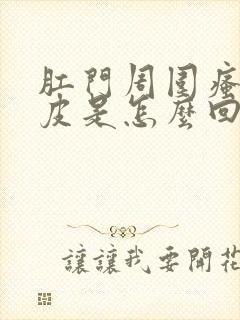 肛門周圍瘙
皮是怎麼回
讓讓我要開花